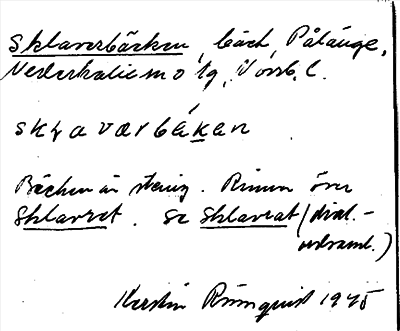 Sklaverbäcken, bäck, Pålänge,
Nederkalix md tg, Norrb. l.
sklavərbékan
Bäcken är stenig. Rinner över
Sklavret. Se Sklavrat (dial.-
ordsaml.)
Kerstin Rönnqvist 1945